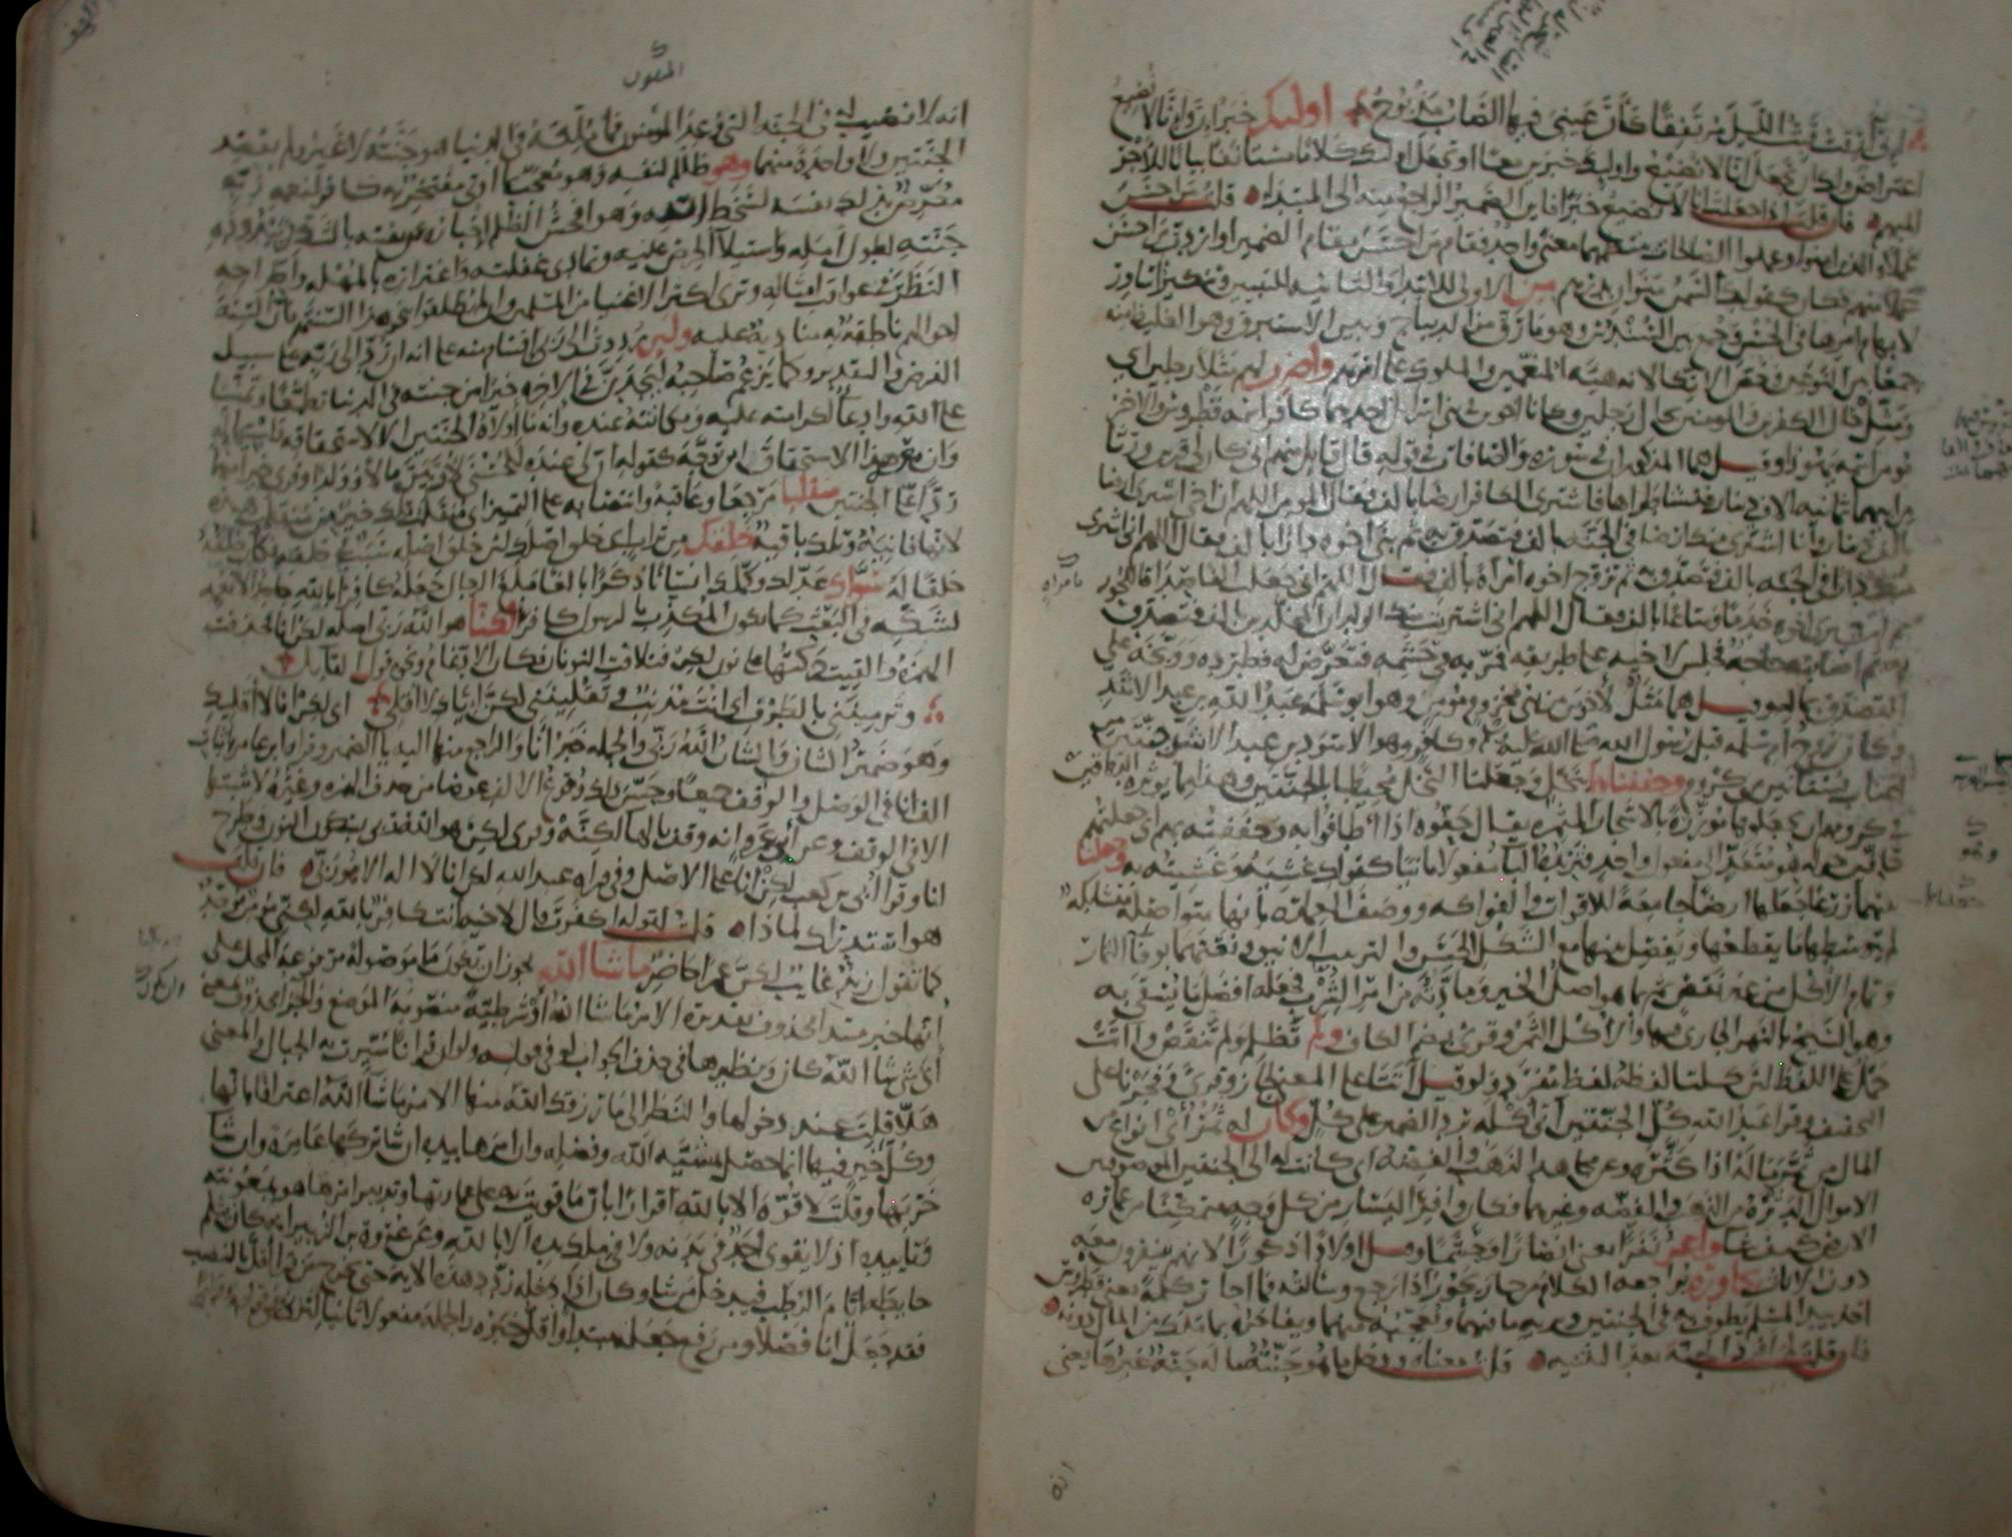 اني ارقت فبت الليل مرتفقا كأن عيني فيها الصاب مذبوح اوليك خبر ان وانا لا نضيع
اعتراض ولك ان تجعل انا لا نضيع واوليك خبرين معا او تجعل اوليك كلاما مستانفا بيانا للاجر
المبهم فان قلت اذا جعلت انا لا نضيع خبرا فاين الضمير الراجع منه الى المبتدا قلت من احسن
عملا والذين امنوا وعملوا الصالحات ينتظمهما معنى واحد فقام من احسن مقام الضمير او اردت من احسن
عملا منهم فكان كقولك السمن منوان بدرهم من الاولى للابتدا والثانيه للتبيين وتنكير اساور
لابهام امرها في الحسن وجمع بين السندس وهو ما رق من الديباج وبين الاستبرق وهو الغليظ منه
جمعا بين النوعين وخص الاتكا لانه هيئة المنعمين والملوك على اسرتهم واضرب لهم مثلا رجلين اي
ومثل حال الكفرين والمومنين بحال رجلين وكانا اخوين في بني اسرائيل احدهما كافر اسمه قطروس والاخر
مومن اسمه يهوذا وقيل هما المذكوران في سوره والصافات في قوله قال قايل منهم اني كان لي قرين ورثا
من ابيهما ثمانيه الاف دينار فتشاطراها فاشترى الكافر ارضا بالف فقال المومن اللهم ان اخي اشترى ارضا
بالف دينار وانا اشتري منك ارضا في الجنة بالف فتصدق به ثم بنى اخوه دارا بالف فقال اللهم اني اشتري
منك دارا في الجنه بالف فتصدق به ثم تزوج اخوه امرأة بالف فقال اللهم اني جعلت الفا صداقا للحور
ثم اشترى اخوه خدما ومتاعا بالف فقال اللهم اني اشتريت منك الولدان المخلدين بالف فتصدق
به ثم اصابته حاجة فجلس لاخيه على طريقه فمر به في حشمه فتعرض له فطرده ووبخه على
التصدق بماله وقيل هما مثل لاخوين من بني مخزوم مؤمن وهو ابو سلمه عبد الله بن عبد الاشد
وكان زوج ام سلمه قبل رسول الله صلى الله عليه وكافر وهو الاسود بن عبد الاشد جنتين من
اعناب بستانين من كروم وحففناهما بنخل وجعلنا النخل محيطا بالجنتين وهذا مما يوثره الدهاقين
في كرومهم ان يجعلوها مؤزرة بالاشجار المثمره يقال حفوه اذا اطافوا به وحففته بهم اي جعلتهم
حافين حوله وهو متعد الى مفعول واحد فتزيده الباء مفعولا ثانيا كقولك غشيه وغشيته به وجعلنا
بينهما زرعا جعلناها ارضا جامعة للاقوات والفواكه ووصف العمارة بانها متواصلة متشابكة
لم يتوسطها ما يقطعها ويفصل بينها مع الشكل الحسن والترتيب الانيق ونعتهما بوفآ الثمار
وتمام الاكل من غير نقص ثم بما هو اصل الخير ومادته من امر الشرب فجعله افضل ما يسقى به
وهو السيح بالنهر الجاري فيها والاكل الثمر وقرئ بضم الكاف ولم تظلم ولم تنقص واتت
حمل على اللفظ لان كلتا لفظه لفظ مفرد ولو قيل اتتا على المعنى لجاز وقرئ وفجرنا على
التخفيف وقرا عبد الله كل الجنتين اتى اكله يرد الضمير على كل وكان له ثمر اي انواع من
المال من ثمر ماله اذا كثره وعن مجاهد الذهب والفضة اي كانت له الى الجنتين الموصوفتين
الاموال الدثرة من الذهب والفضه وغيرهما وكان وافر اليسار من كل وجه متمكنا من عمارة
الارض كيف شا واعز نفرا يعني انصارا وحشما وقيل اولادا ذكورا لانهم ينفرون معه
دون الاناث يحاوره يراجعه الكلام من حار يحور اذا رجع وسالته فما احار كلمة يعني قطروس
اخذ بيد المسلم يطوف به في الجنتين ويريه ما فيهما ويعجبه منهما ويفاخره بما ملك من المال دونه
فان قلت لم افرد الجنة بعد التثنيه قلت معناه ودخل ما هو جنته ما له جنة غيرها يعني
انه لا نصيب له في الجنة التي وعد المؤمنون فما ملكه في الدنيا هو جنته لا غير ولم يقصد
الجنتين ولا واحدة منهما وهو ظالم لنفسه وهو معجب بما اوتي مفتخر به كافر لنعمه ربه
معرض بذلك نفسه لسخط الله وهو افحش الظلم اخباره عن نفسه بالشك في بيدودة
جنته لطول امله واستيلآ الحرص عليه وتمادي غفلته واغتراره بالمهله واطراحه
النظر في عواقب امثاله وترى اكثر الاغنيا من المسلمين وان لم يطلقوا نحو هذا السنتهم فان السنة
احوالهم ناطقة به منادية عليه ولين رددت الى ربي اقسام منه على انه ان رد الى ربه على سبيل
الفرض والتقدير وكما يزعم صاحبه ليجدن في الاخره خيرا من جنته في الدنيا تطمعا وتمنيا
على الله وادعآ لكرامته عليه ومكانته عنده وانه ما اولاه الجنتين الا لاستحقاقه
وان معه هذا الاستحقاق اين توجه كقوله ان لي عنده للحسنى لاوتين مالا وولدا وقرئ خيرا منهما
ردا على الجنتين منقلبا مرجعا وعاقبة وانتصابه على التمييز اي منقلب تلك خير من منقلب هذه
لانها فانية وتلك باقية خلقك من تراب اي خلق اصلك لان خلق اصله سبب في خلقه فكان خلقه
خلقا له سواك عدلك وكملك انسانا ذكرا بالغا مبلغ الرجال جعله كافرا بالله جاحدا لانعمه
لشكه في البعث كما يكون المكذب بالرسول كافرا لكنا هو الله ربي اصله لكن انا فحذفت
الهمزة والقيت حركتها على نون لكن فتلاقت النونان فكان الادغام ونحوه قول القايل
وترمينني بالطرف اي انت مذنب وتقلينني لكن اياك لا اقلي اي لكن انا لا اقليك
وهو ضمير الشان والشان الله ربي والجمله خبر انا والراجع منها اليه يا الضمير وقرا ابن عامر باثبات
الف انا في الوصل والوقف جميعا وحسن ذلك وقوع الالف عوضا من حذف الهمزه وغيره لا يثبتها
الا في الوقف وعن ابي عمرو انه وقف بالها لكنه وقرئ لكن هو الله ربي بسكون النون وطرح
انا وقرا ابي بن كعب لكن انا على الاصل وفي قراه عبد الله لكن انا لا اله الا هو ربي فان قلت
هو استدراك لماذا قلت لقوله اكفرت قال لاخيه انت كافر بالله لكني مؤمن موحد
كما تقول زيد غايب لكن عمرا حاضر ماشا الله يجوز ان تكون ما موصوله مرفوعة المحل على
انها خبر مبتدا محذوف تقديره الامر ماشا الله او شرطية منصوبة الموضع والجزاء محذوف بمعنى
اي شي شا الله كان ونظيرها في حذف الجواب لو في قوله ولو ان قرانا سيرت به الجبال والمعنى
هلا قلت عند دخولها والنظر الى ما رزقك الله منها الامر ماشآ الله اعترافا بانها
وكل خير فيها انما حصل بمشية الله وفضله وان امرها بيده ان شا تركها عامرة وان شا
خربها وقلت لا قوة الا بالله اقرارا بان ما قويت به على عمارتها وتدبير امرها هو بمعونته
وتاييده اذ لا يقوى احد في بدنه ولا في ملك يده الا بالله وعن عروة بن الزبير انه كان يثلم
حايطه ايام الرطب فيدخل من شا وكان اذا دخله ردد هذه الاية حتى يخرج من قرا اقل بالنصب
فقد جعل انا فصلا ومن رفع جعله مبتدا واقل خبره والجملة مفعولا ثانيا لترني